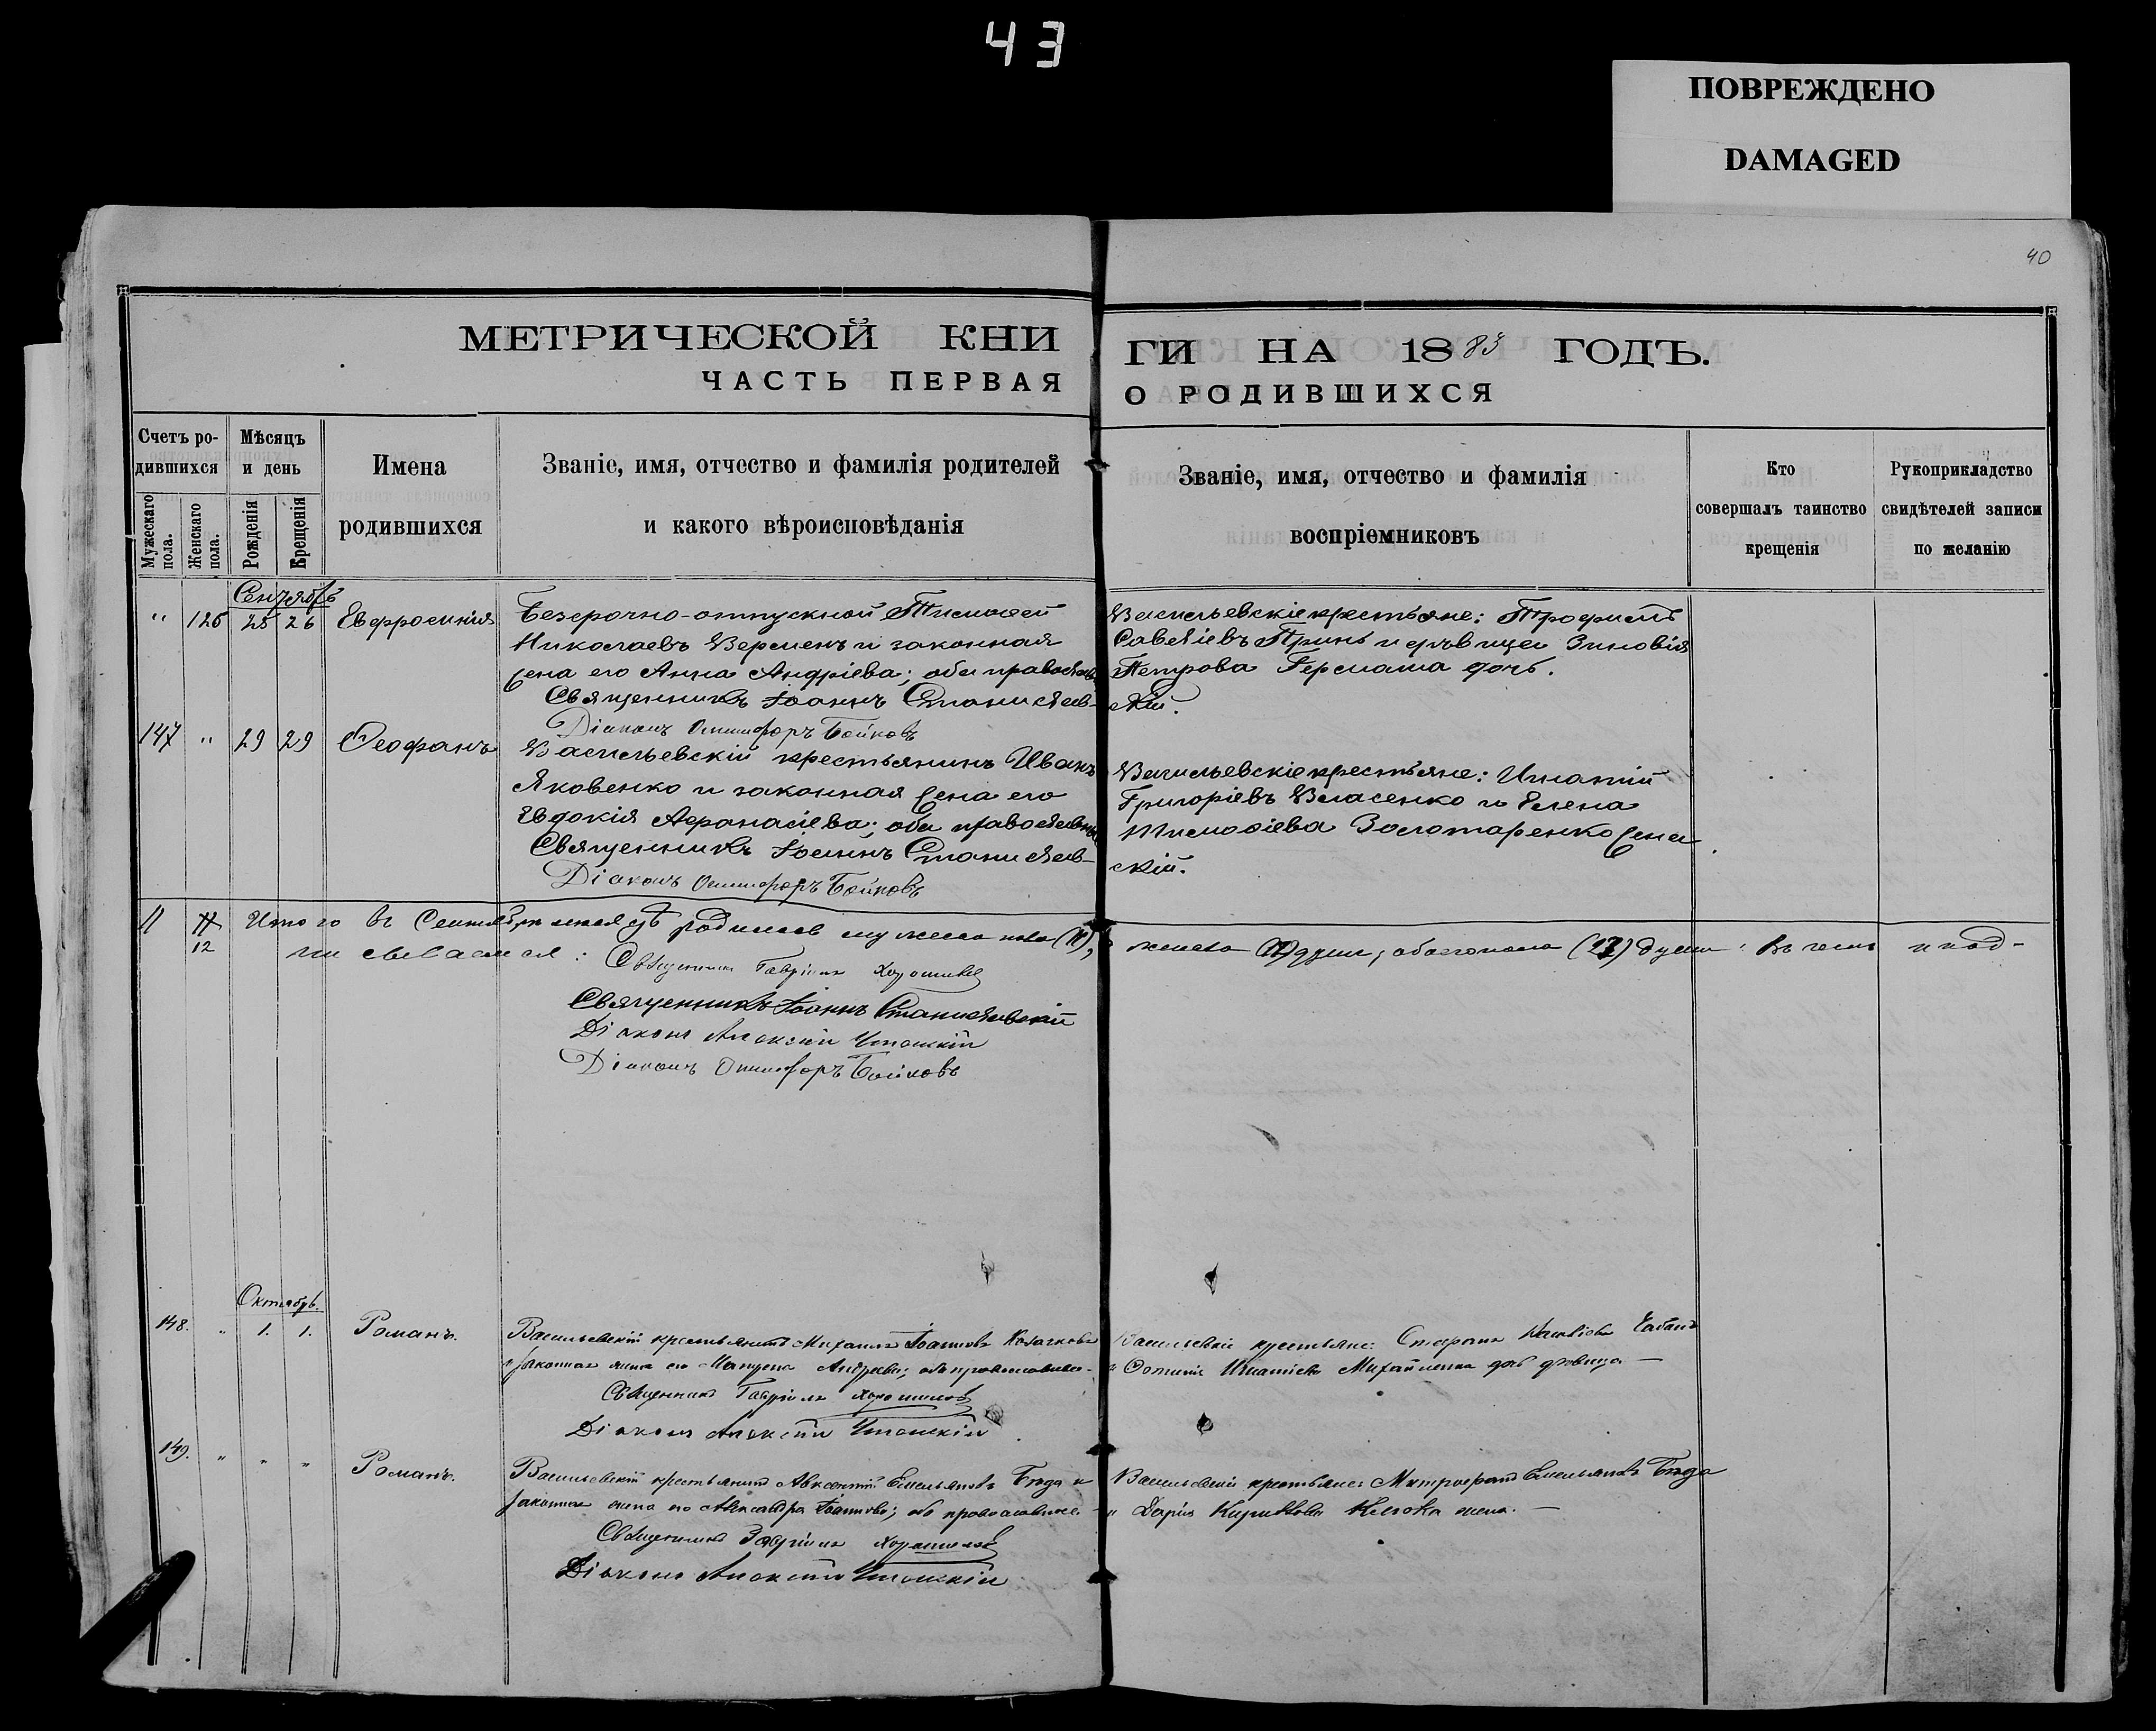 43
ПОВРЕЖДЕНО
DAMAGED
40
МЕТРИЧЕСКОЙ КНИ
ГИ НА 1883 ГОДЪ.
ЧАСТЬ ПЕРВАЯ
О РОДИВШИХСЯ
Счетъ ро-
дившихся
Мужескаго пола.
Женскаго пола.
Мѣсяцъ
и день
Рожденія
Крещенія
Имена
родившихся
Званіе, имя, отчество и фамилія родителей
и какого вѣроисповѣданія
Званіе, имя, отчество и фамилія
воспріемниковъ
Кто
совершалъ таинство
крещенія
Рукоприкладство
свидѣтелей записи
по желанію
Сентябрь
" 126 25 26 Евфросинія
Безсрочно-отпускной Тимоѳей
Николаевъ Вермень и законная
жена его Анна Андріева; оба православн
Священникъ Іоаннъ Станиславв-
Діаконъ Бойковъ
Васильевскіе крестьяне: Трофимъ
Савеліевъ и дѣвица Зиновія
Петрова Германа дочь.
скій.
147 " 29 29 Ѳеофанъ
Васильевскій крестьянинъ Иванъ
Яковенко и законная жена его
Евдокія Аѳанасіева; оба православные
Священникъ Іоаннъ Станиславв-
Діаконъ Бойковъ
Васильевскіе крестьяне: Игнатій
Григоріевъ Власенко и Елена
Тимоѳіева Золотаренко жена
скій.
11 12 Итого въ Сентябрѣ мѣсяцѣ родилось мужеска пола (11),
женска душъ; обоего пола душъ: въ чемъ и под-
писываемся: Священникъ Гавріилъ Хорошиловъ
Священникъ Іоаннъ Станиславскій
Діаконъ Алексій
Діаконъ Бойковъ
Октябрь.
148. " 1. 1. Романъ.
Васильевскій крестьянинъ Михаилъ Іоанновъ Козачковъ
и законная жена его Андреева; оба православные.
Священникъ Гавріилъ Хорошиловъ
Діаконъ Алексій
Васильевскіе крестьяне:
и Игнатіева Михайленка дочь дѣвица —
149. " " " Романъ.
Васильевскій крестьянинъ Авксентій Емельяновъ Бѣда и
законная жена его Александра Іоаннова; оба православные
Священникъ Гавріилъ Хорошиловъ
Діаконъ Алексій
Васильевскіе крестьяне: Митрофанъ Емельяновъ Бѣда
и Дарія Кириллова жена. —